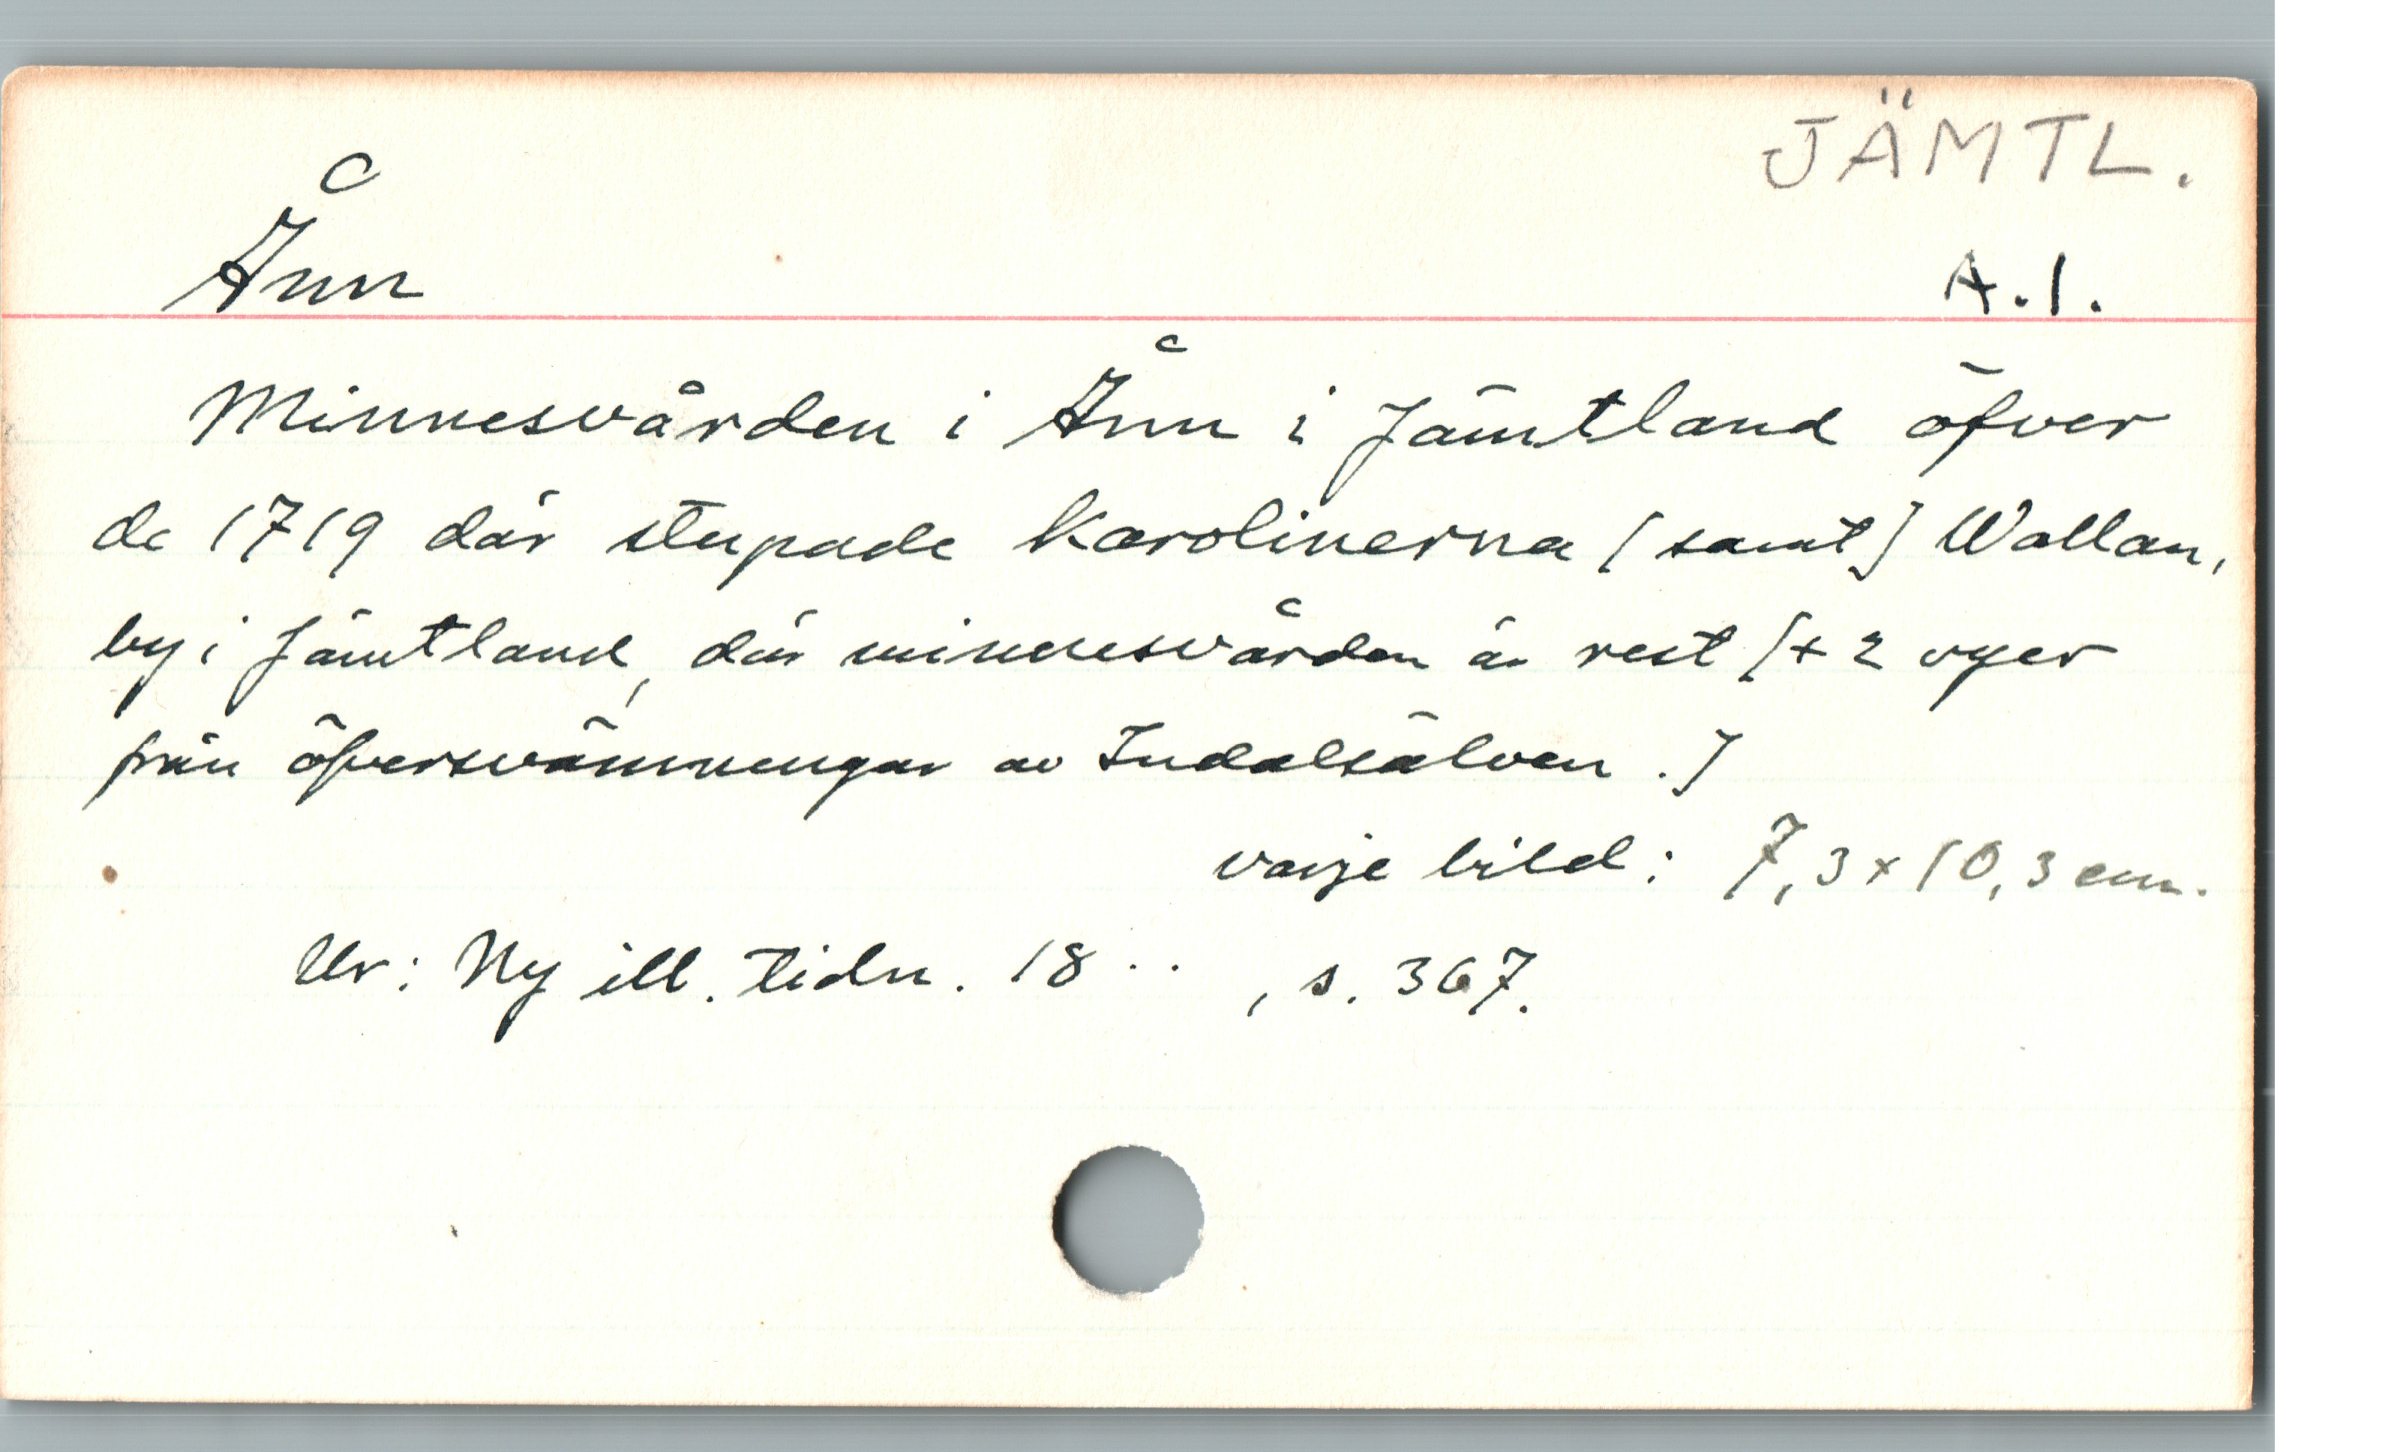 JÄMTL.
Ånn
A.1.
Minnesvården i Ånn i Jämtland öfver
de 1719 där stupade Karolinerna [samt] Wallan,
by i Jämtland, där minnesvården är rest [+ 2 vyer
från öfversvämningar av Indalsälven.]
varje bild: 7,3 x 10,3 cm.
Ur: Ny ill. tidn. 18 . . , s. 367.